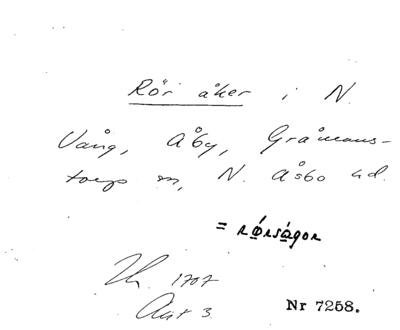 Rör åker i N.
Vång, Åby, Gråmans-
torps sn, N. Åsbo hd.
= rǿrságor
Lh. 1707
Akt 3.
Nr 7258.